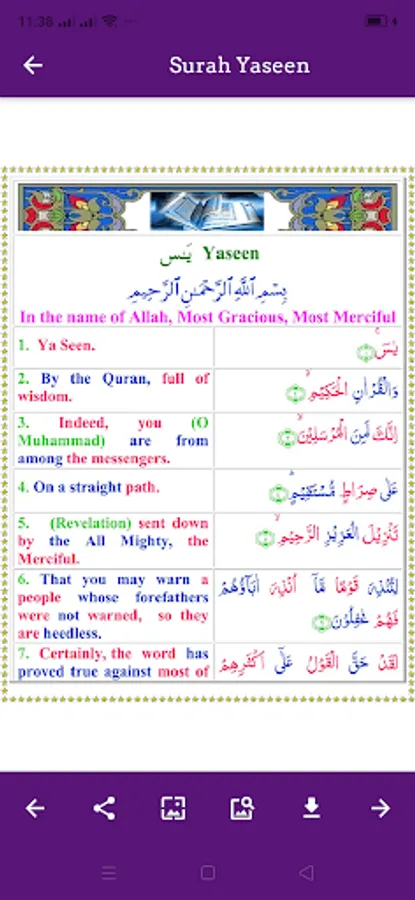 11.38
Surah Yaseen
يٰسٓ Yaseen
بِسْمِ ٱللَّهِ ٱلرَّحْمَٰنِ ٱلرَّحِيمِ
In the name of Allah, Most Gracious, Most Merciful
1. Ya Seen.
يٰسٓ ۚ ﴿١﴾
2. By the Quran, full of
wisdom.
وَالْقُرْاٰنِ الْحَكِيْمِ ۙ ﴿٢﴾
3. Indeed, you (O
Muhammad) are from
among the messengers.
اِنَّكَ لَمِنَ الْمُرْسَلِيْنَ ۙ ﴿٣﴾
4. On a straight path.
عَلٰى صِرَاطٍ مُّسْتَقِيْمٍ ؕ ﴿٤﴾
5. (Revelation) sent down
by the All Mighty, the
Merciful.
تَنْزِيْلَ الْعَزِيْزِ الرَّحِيْمِ ۙ ﴿٥﴾
6. That you may warn a
people whose forefathers
were not warned, so they
are heedless.
لِتُنْذِرَ قَوْمًا مَّاۤ اُنْذِرَ اٰبَآؤُهُمْ
فَهُمْ غٰفِلُوْنَ ﴿٦﴾
7. Certainly, the word has
proved true against most of
لَقَدْ حَقَّ الْقَوْلُ عَلٰٓى اَكْثَرِهِمْ